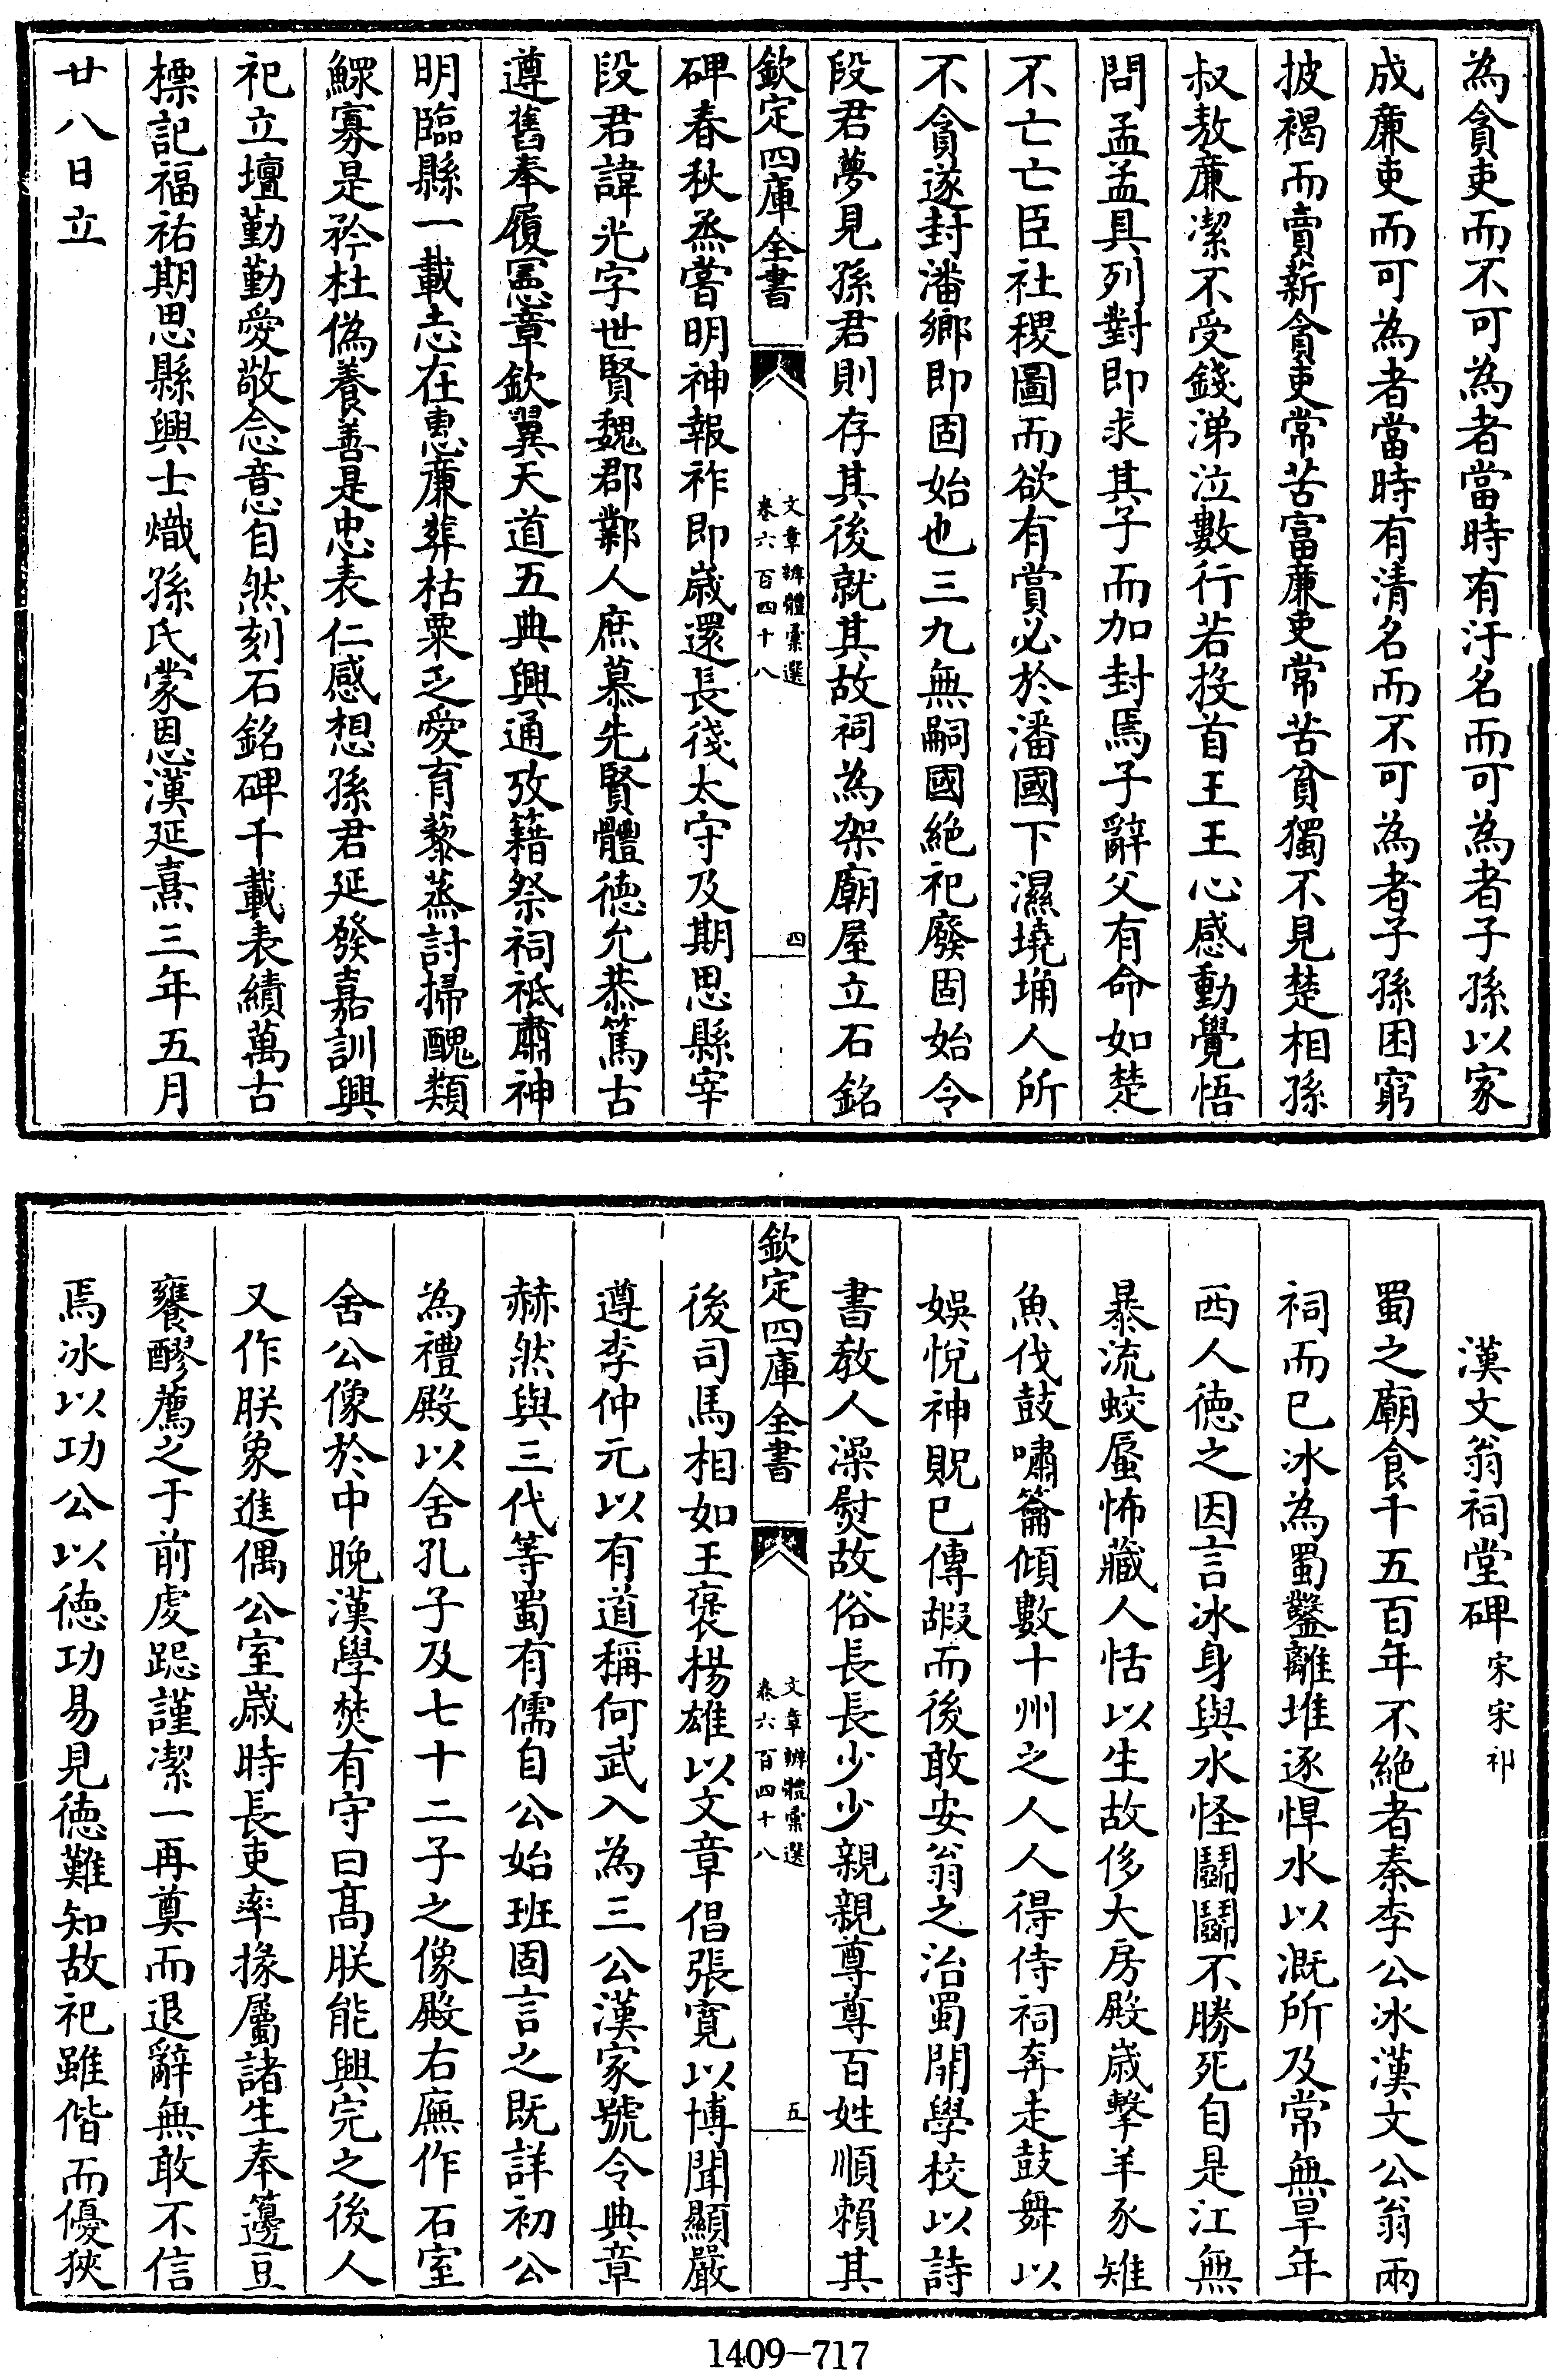 為貪吏而不可為者當時有汙名而可為者子孫以家
成廉吏而可為者當時有清名而不可為者子孫困窮
披褐而賣薪貪吏常苦富廉吏常苦貧獨不見楚相孫
叔敖廉潔不受錢涕泣數行若投首王王心感動覺悟
問孟孟具列對即求其子而加封焉子辭父有命如楚
不亡亡臣社稷圖而欲有賞必於潘國下濕墝埆人所
不貪遂封潘鄉即固始也三九無嗣國絕祀廢固始令
段君夢見孫君則存其後就其故祠為架廟屋立石銘
欽定四庫全書
文章辨體彙選
卷六百四十八
四
碑春秋烝嘗明神報祚即歲還長𥬲太守及期思縣宰
段君諱光字世賢魏郡鄴人庶慕先賢體德允恭篤古
遵舊奉履憲章欽翼天道五典興通攷籍祭祠祗肅神
明臨縣一載志在惠廉葬枯粟乏愛育黎蒸討掃醜類
鰥寡是矜杜偽養善是忠表仁感想孫君延發嘉訓興
祀立壇勤勤愛敬念意自然刻石銘碑千載表績萬古
標記福祐期思縣興士熾孫氏蒙恩漢延熹三年五月
廿八日立
漢文翁祠堂碑 宋宋祁
蜀之廟食千五百年不絕者秦李公冰漢文公翁兩
祠而已冰為蜀鑿離堆逐悍水以溉所及常無旱年
西人德之因言冰身與水怪鬭鬭不勝死自是江無
暴流蛟蜃怖藏人恬以生故侈大房殿歲擊羊豕雉
魚伐鼓嘯籥傾數十州之人人得侍祠奔走鼓舞以
娛悅神貺已傳嘏而後敢安翁之治蜀開學校以詩
書教人澡熨故俗長長少少親親尊尊百姓順賴其
欽定四庫全書
文章辨體彙選
卷六百四十八
五
後司馬相如王褒揚雄以文章倡張寬以博聞顯嚴
遵李仲元以有道稱何武入為三公漢家號令典章
赫然與三代等蜀有儒自公始班固言之既詳初公
為禮殿以舍孔子及七十二子之像殿右廡作石室
舍公像於中晚漢學焚有守曰高朕能興完之後人
又作朕象進偶公室歲時長吏率掾屬諸生奉籩豆
饔醪薦之于前虔跽謹潔一再奠而退辭無敢不信
焉冰以功公以德功易見德難知故祀雖偕而優狹
1409-717